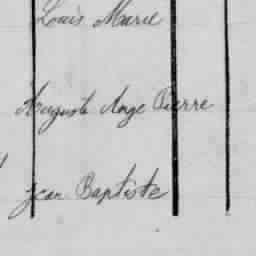 Louis Marie
Auguste Ange Pierre
Jean Baptiste